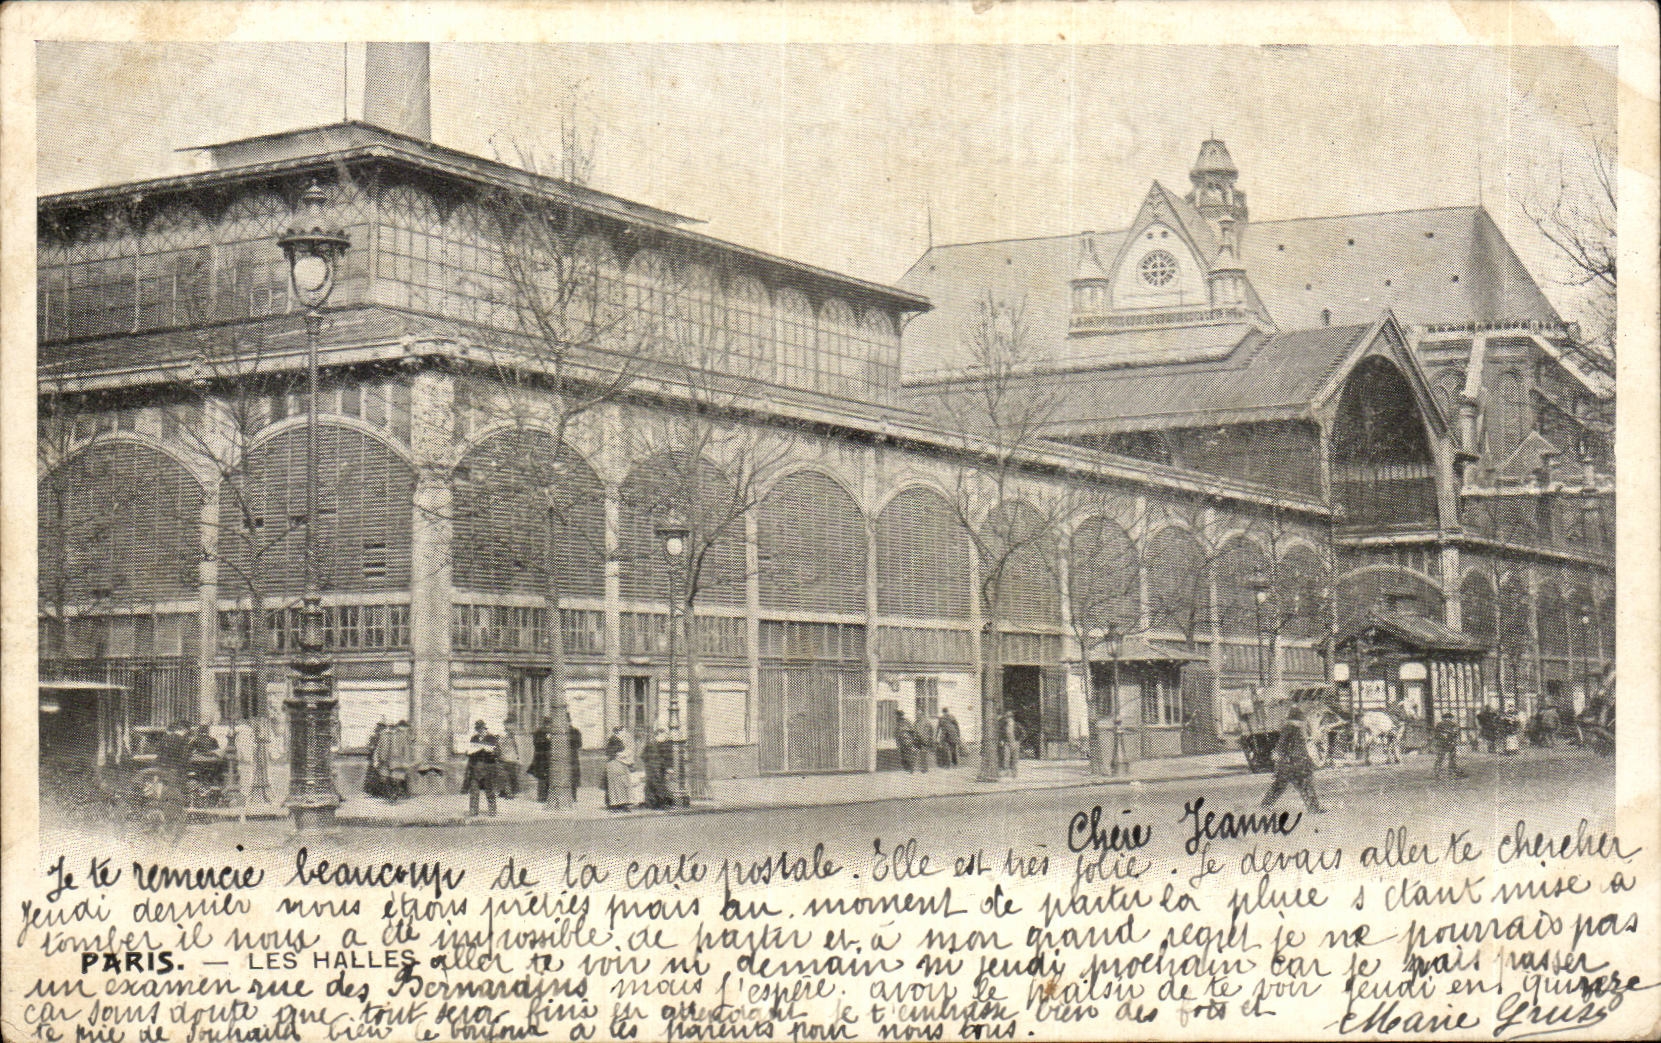 Chère Jeanne.
Je te remercie beaucoup de ta carte postale. Elle est très jolie. Je devais aller te chercher
jeudi dernier nous étions prêtes mais au moment de partir la pluie s'étant mise à
tomber il nous a été impossible de partir et à mon grand regret je ne pourrais pas
PARIS. — LES HALLES
aller te voir ni demain ni jeudi prochain car je vais passer
un examen rue des Bernardins mais j'espère avoir le plaisir de te voir jeudi en quinze
car sans doute que tout sera fini en attendant je t'embrasse bien des fois et
te prie de souhaiter bien le bonjour à tes parents pour nous tous.
Marie